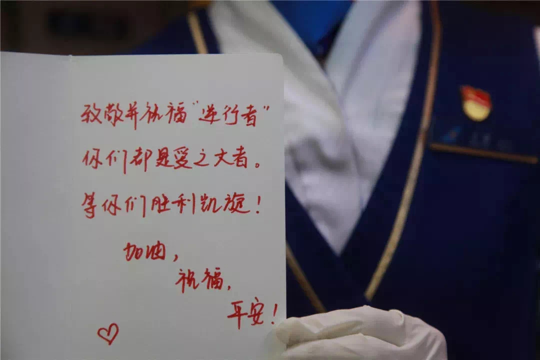 致敬并祝福“逆行者”
你们都是爱之大者。
等你们胜利凯旋！
加油，
祝福，
平安！